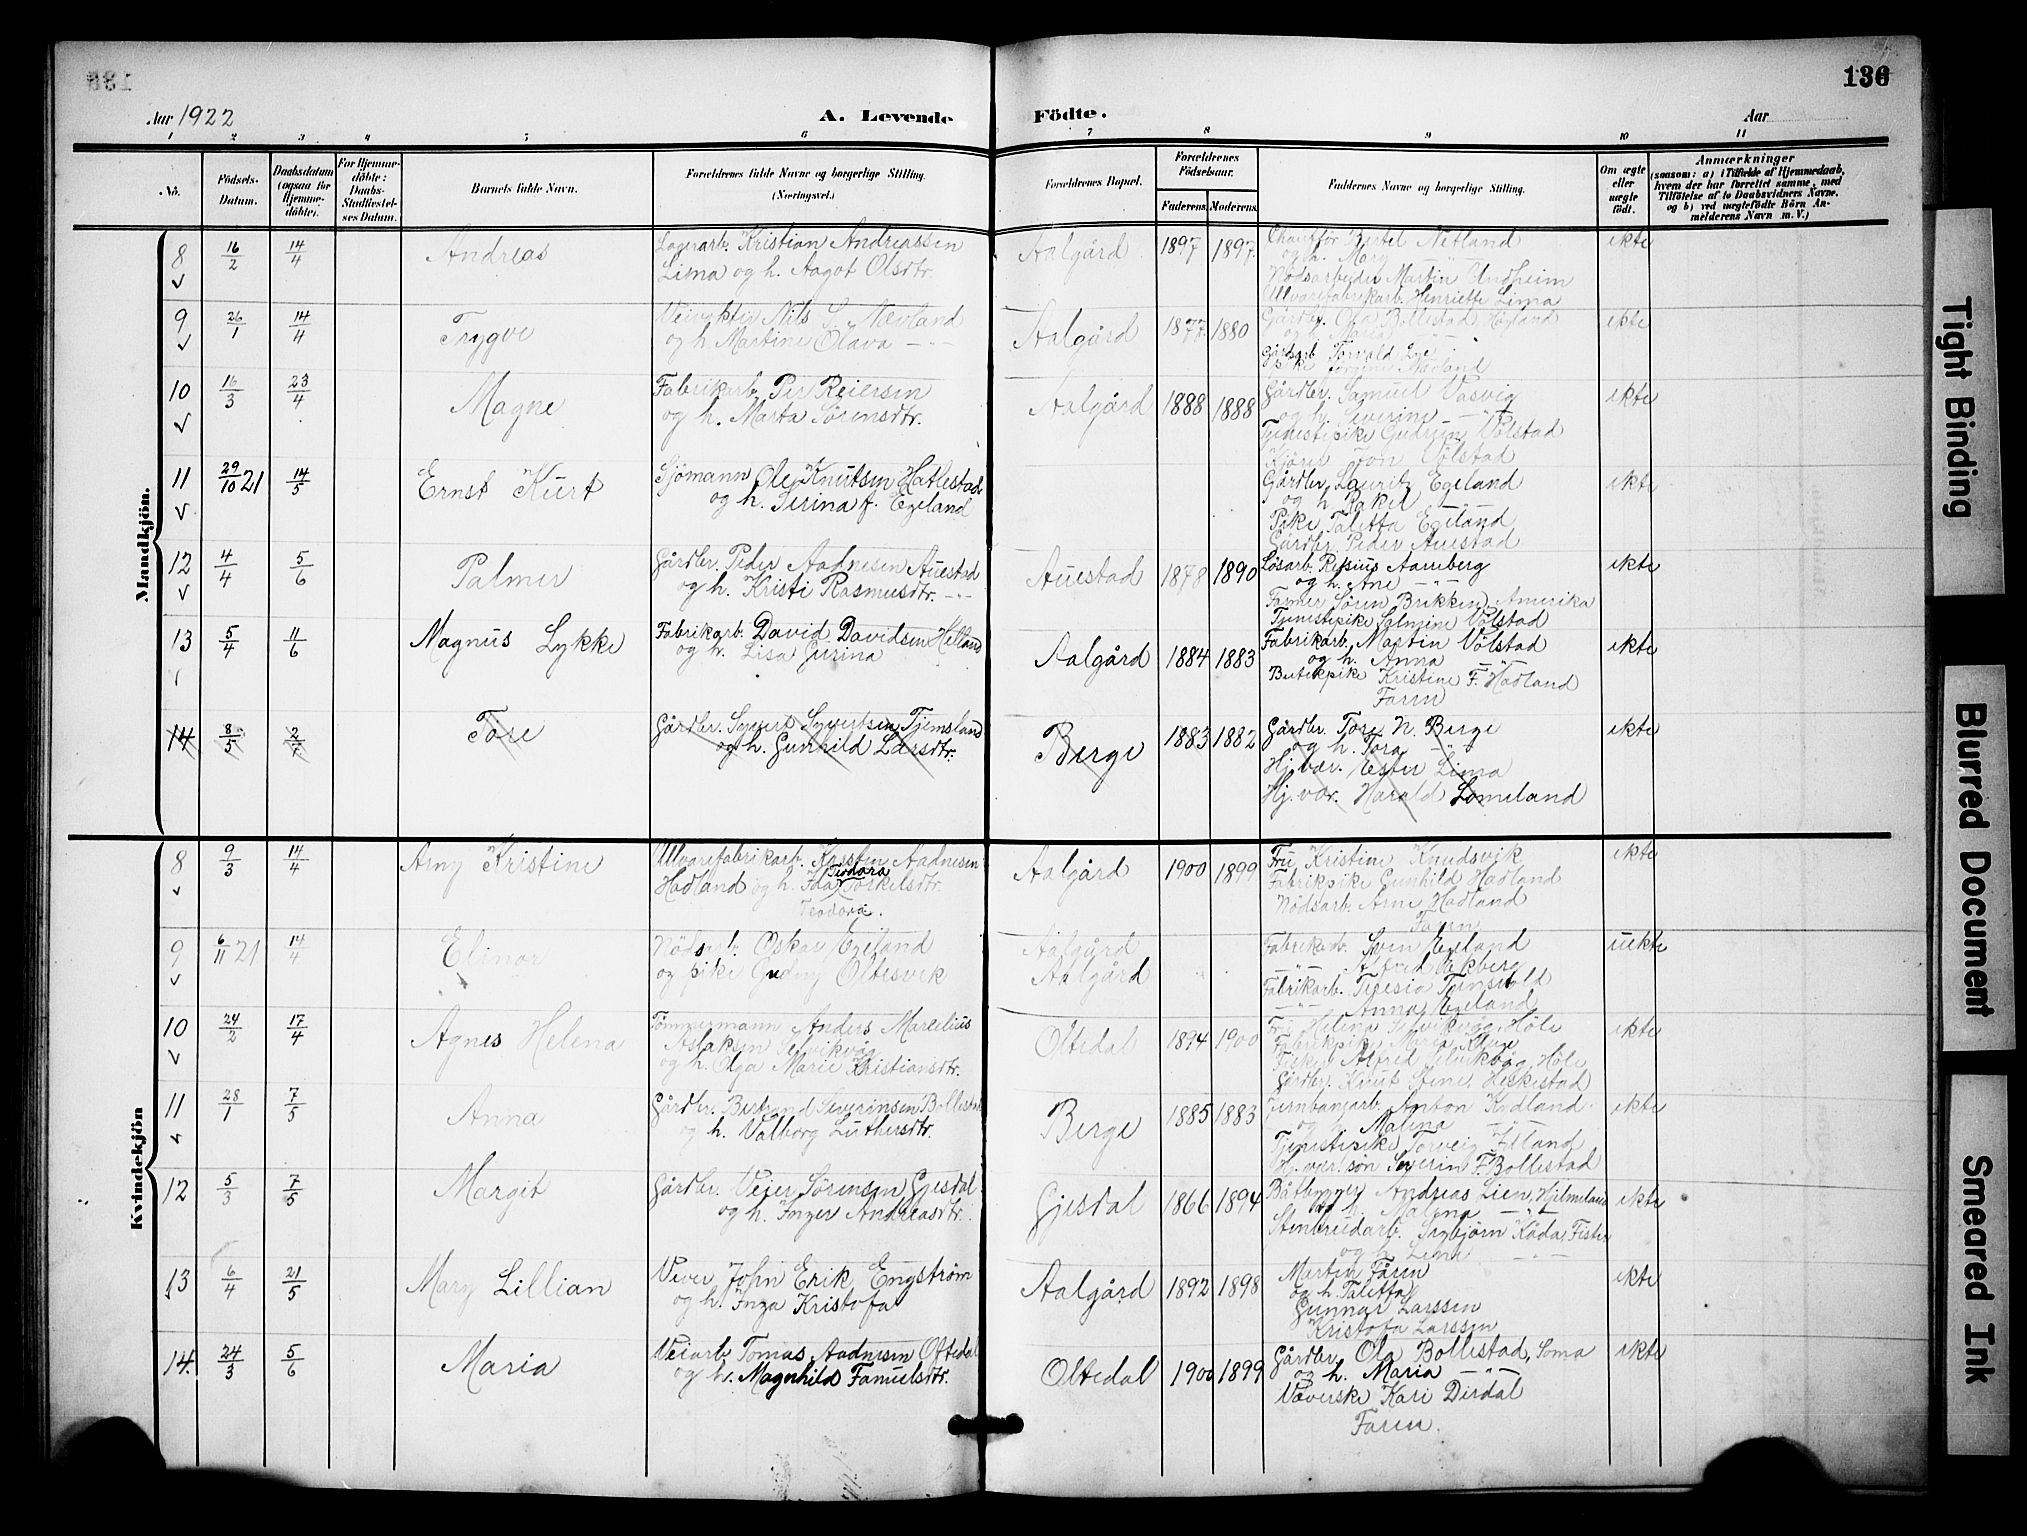 136
Aar 1922
A. Levende Födte.
Aar
1 2 3 4 5 6 7 8 9 10 11
No.
Födsels-Datum.
Daabsdatum (ogsaa for Hjemmedöbte).
For Hjemmedöbte: Daabs-Stadfæstelses Datum.
Barnets fulde Navn.
Forældrenes fulde Navne og borgerlige Stilling. (Næringsvei.)
Forældrenes Bopæl.
Forældrenes Födselsaar.
Faderens. Moderens.
Faddernes Navne og borgerlige Stilling.
Om ægte eller uægte födt.
Anmærkninger
(saasom: a) i Tilfælde af Hjemmedaab,
hvem der har forrettet samme, med
Tilföielse af to Daabsvidners Navne,
og b) ved uægtefödte Börn Anmelderens Navn m. V.)
Mandkjön.
8 16/2 14/4 Andreas
Lagerarb. Kristian Andreassen
Lima og h. Aagot Olsdtr.
Aalgård 1897 1897
Chaufför Bertel Netland
og h. Mary —"—
Nödsarbeider Martin Undheim
Ullvarefabrikarb. Henriette Lima
ekte
9 26/1 14/4 Trygve
Veivokter Nils S. Nevland
og h Martine Olava —"—
Aalgård 1877 1880
Gårdbr. Ola Bollestad Höyland
Gårdsarb. Torvald
ekte
10 16/3 23/4 Magne
Fabrikarb. Per Reiersen
og h. Marta Sörensdtr.
Aalgård 1888 1888
Gårdbr. Samuel Vasvig
og h. Severine —"—
Tjenestepike Gudrun Völstad
Kjörer Jon Völstad
ekte
11 29/10 21 14/5 Ernst Kurt
Sjömann Ole Knutsen Hatlestad
og h. Serina f. Egeland
Gårdbr. Lauritz Egeland
og h. Rakel —"—
Pike Talitta Egeland
Gårdbr. Peder Auestad
ekte
12 4/4 5/6 Palmer
Gårdbr. Peder Aadnesen Auestad
og h. Kristi Rasmusdtr. —"—
Auestad 1878 1890
Lösarb. Refsius Aamberg
og h. Ane —"—
Farmer Sören Brekken, Amerika
Tjenestepike Salmine Völstad
ekte
13 5/4 11/6 Magnus Lykke
Fabrikarb. David Davidsen Helland
og h. Lisa Gurina
Aalgård 1884 1883
Fabrikarb. Martin Völstad
og h. Anna —"—
Butikpike Kristine F. Hadland
Faren
ekte
14 8/5 2/7 Tore
Gårdbr. Syvert Syvertsen Tjemsland
og h. Gunhild Larsdtr.
Berge 1883 1882
Gårdbr. Tore N. Berge
og h. Tora —"—
Hj. vær. Ester Lima
Hj. vær. Harald Lomeland
ekte
Kvindekjön
8 9/3 14/4 Arny Kristine
Ullvarefabrikarb. Karsten Aadnesen
Hadland og h. Ida Teodora Torkelsdtr.
Teodora.
Aalgård 1900 1899
Fru Kristine Knudsvik
Fabrikpike Gunhild Hadland
Nödsarb. Arne Hadland
Faren
ekte
9 6/11 21 14/4 Elinor
Nödsarb. Oskar Egeland
og pike Gudny Oltesvik
Aalgård
Aalgård
Fabrikarb. Sven Egeland
—"— Alfred Akberg
Fabrikarb. Teresia Tunsvold
—"— Anna Egeland
uekte
10 24/2 17/4 Agnes Helena
Tömmermann Anders Marelius
Aslaksen Selvikvåg
og h. Olga Marie Kristiansdtr.
Oltedal 1894 1900
Fru Helena Selvikvåg, Höle
Fabrikpike Maria
Fisker Alfred Selvikvåg, Höle
Gårdbr. Knut Stene, Heskestad
ekte
11 28/1 7/5 Anna
Gårdbr. Bertrand Severinsen Bollestad
og h. Valborg Luthersdtr.
Berge 1885 1883
Jernbanearb. Anton Kydland
og h. Malena —"—
Tjenestepike Torveig Eiland
Hj. vær. sön Severin F. Bollestad
ekte
12 5/3 7/5 Margit
Gårdbr. Veier Sörensen Gjesdal
og h. Inger Andreasdtr.
Gjesdal 1866 1894
Båtbygger Andreas Lien, Hjelmeland
og h. Malena —"—
Stenbrudarb. Torbjörn Kåda, Fister
og h. Lina —"—
ekte
13 6/4 21/5 Mary Lillian
Vever John Erik Engström
og h. Inga Kristofa
Aalgård 1892 1898
Martin Faren
og h. Talitta
Gunnar Larssen
Kristofa Larssen
ekte
14. 24/3 5/6 Maria
Veiarb. Tomas Aadnesen Oltedal
og h. Magnhild Tanuelsdtr.
Oltedal 1900 1899
Gårdbr. Ola Bollestad, Soma
og h. Maria —"—
Væverske Kari Dirdal
Faren.
ekte
Tight Binding
Blurred Document
Smeared Ink